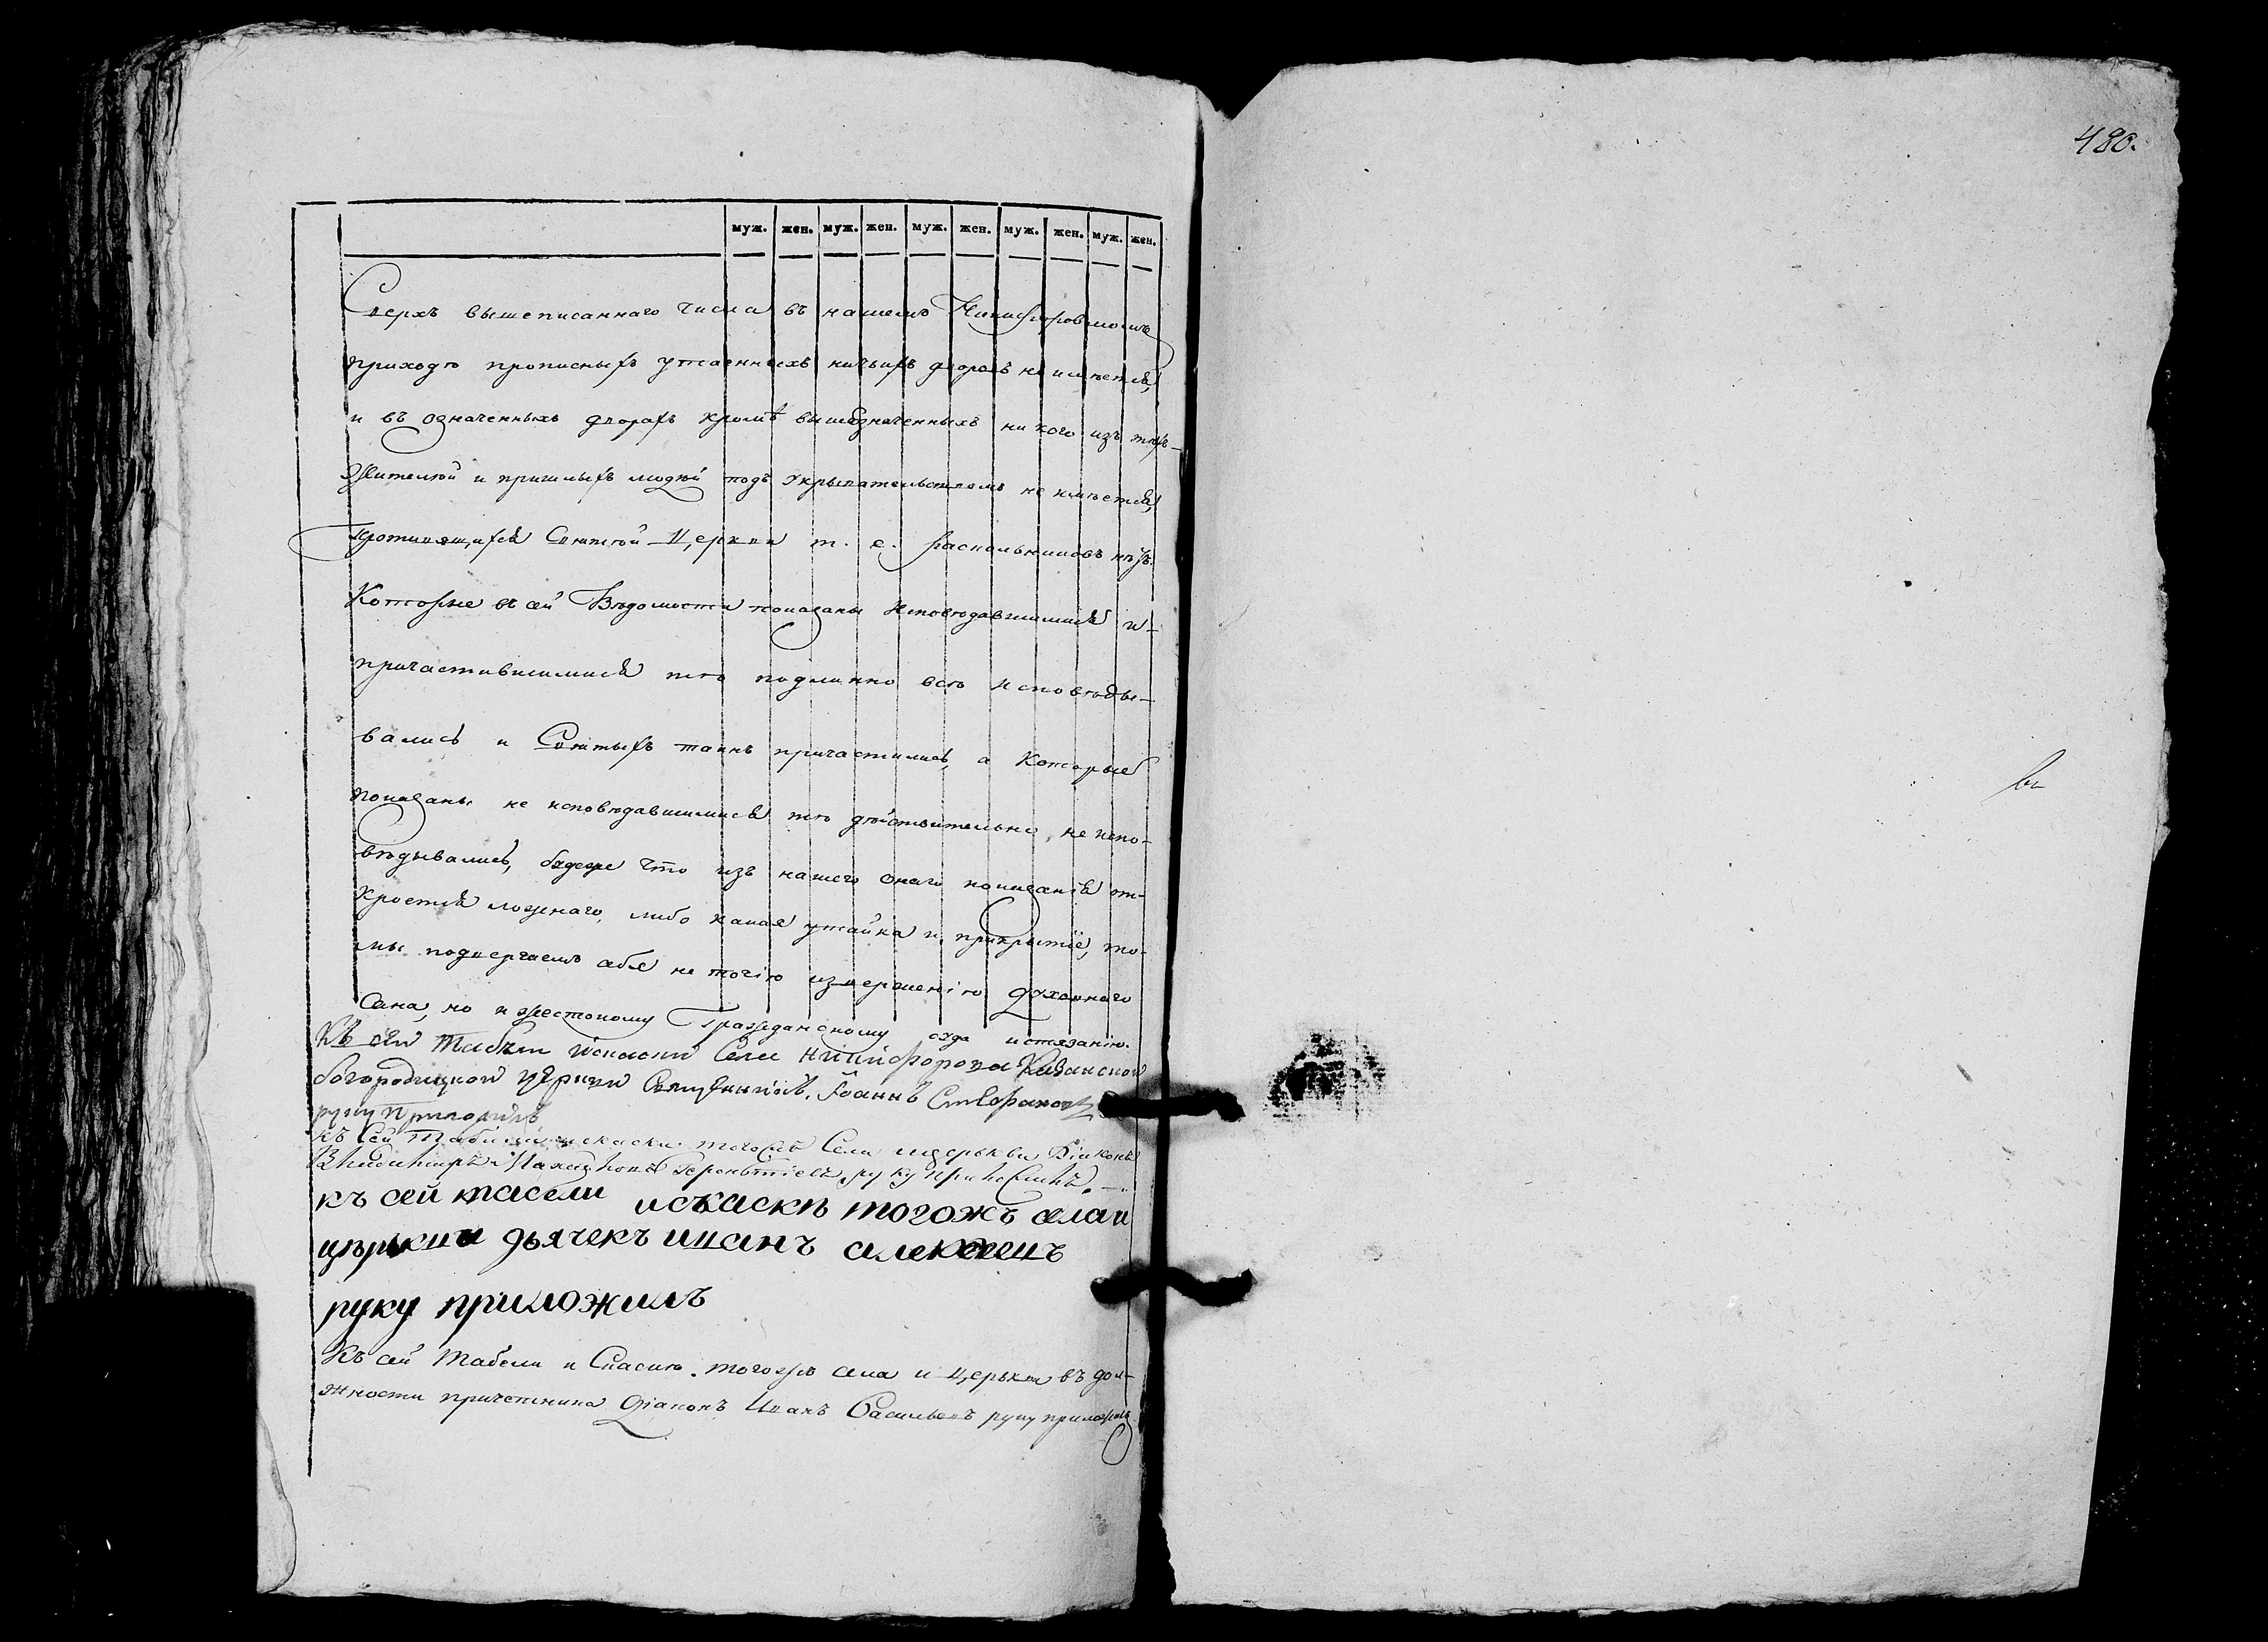 480.
муж. жен. муж. жен. муж. жен. муж. жен. муж. жен.
Сверхъ вышеписаннаго числа въ нашемъ Никифоровскомъ
приходѣ прописныхъ утаенныхъ ничьихъ дворовъ не имѣется,
и въ означенныхъ дворахъ кромѣ вышеозначенныхъ ни кого изъ тѣхъ
жителей и пришлыхъ людей подъ укрывательствомъ не имѣется,
Противящихся Святой Церкви т. е. раскольниковъ нѣтъ.
Которые въ сей Вѣдомости показаны исповѣдавшимися и
причастившимися тѣ подлинно всѣ исповѣды-
вались и Святыхъ таинъ причастились, а которые
показаны не исповѣдавшимися тѣ дѣйствительно не испо-
вѣдывались, буде же что изъ нашего онаго показанія от-
кроется ложнаго, либо какая утайка и прикрытіе, то
мы подвергаемъ себя не точію изверженію духовнаго
Сана, но и жестокому Гражданскому суда истязанію.
Къ сей табели искаски Села Никифорова Казанской
богородицкой церкви Священникъ Іоаннъ Стефановъ
руку приложилъ
къ сей табели искаски тогожъ Села ицерькви Діаконъ
руку приложилъ.
къ сей тасели искаски тогожъ села и
церькви дьячекъ иванъ алексеевъ
руку приложилъ
Къ сей табели и Скаскѣ тогожъ села и церькви въ дол-
жности причетника Діаконъ Иванъ Васильевъ руку приложилъ